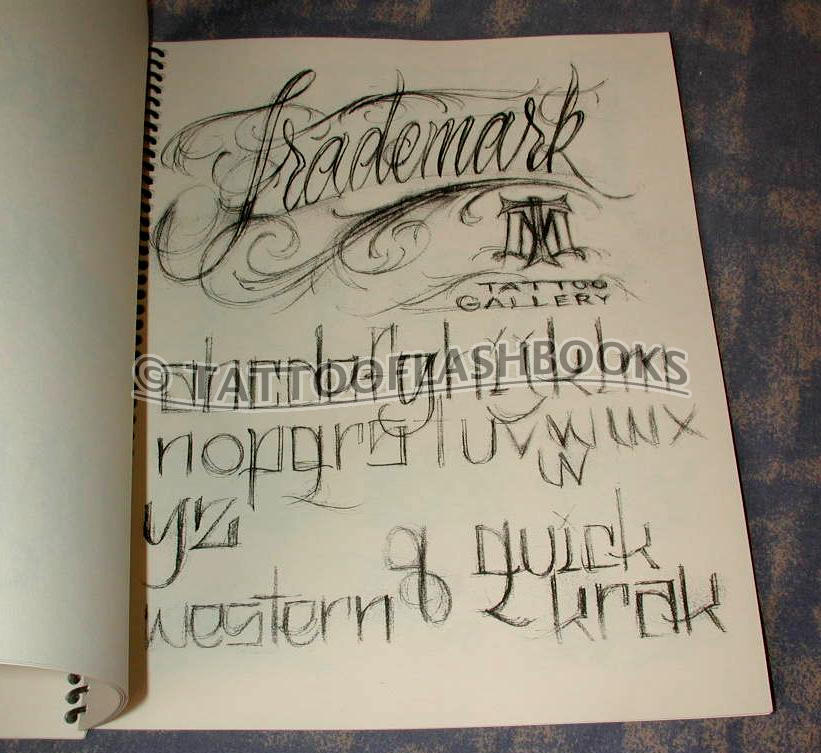 Trademark
TM
TATTOO
GALLERY
© TATTOOFLASHBOOKS
nopqrstuvwwx
w
yz
quick
western
krak